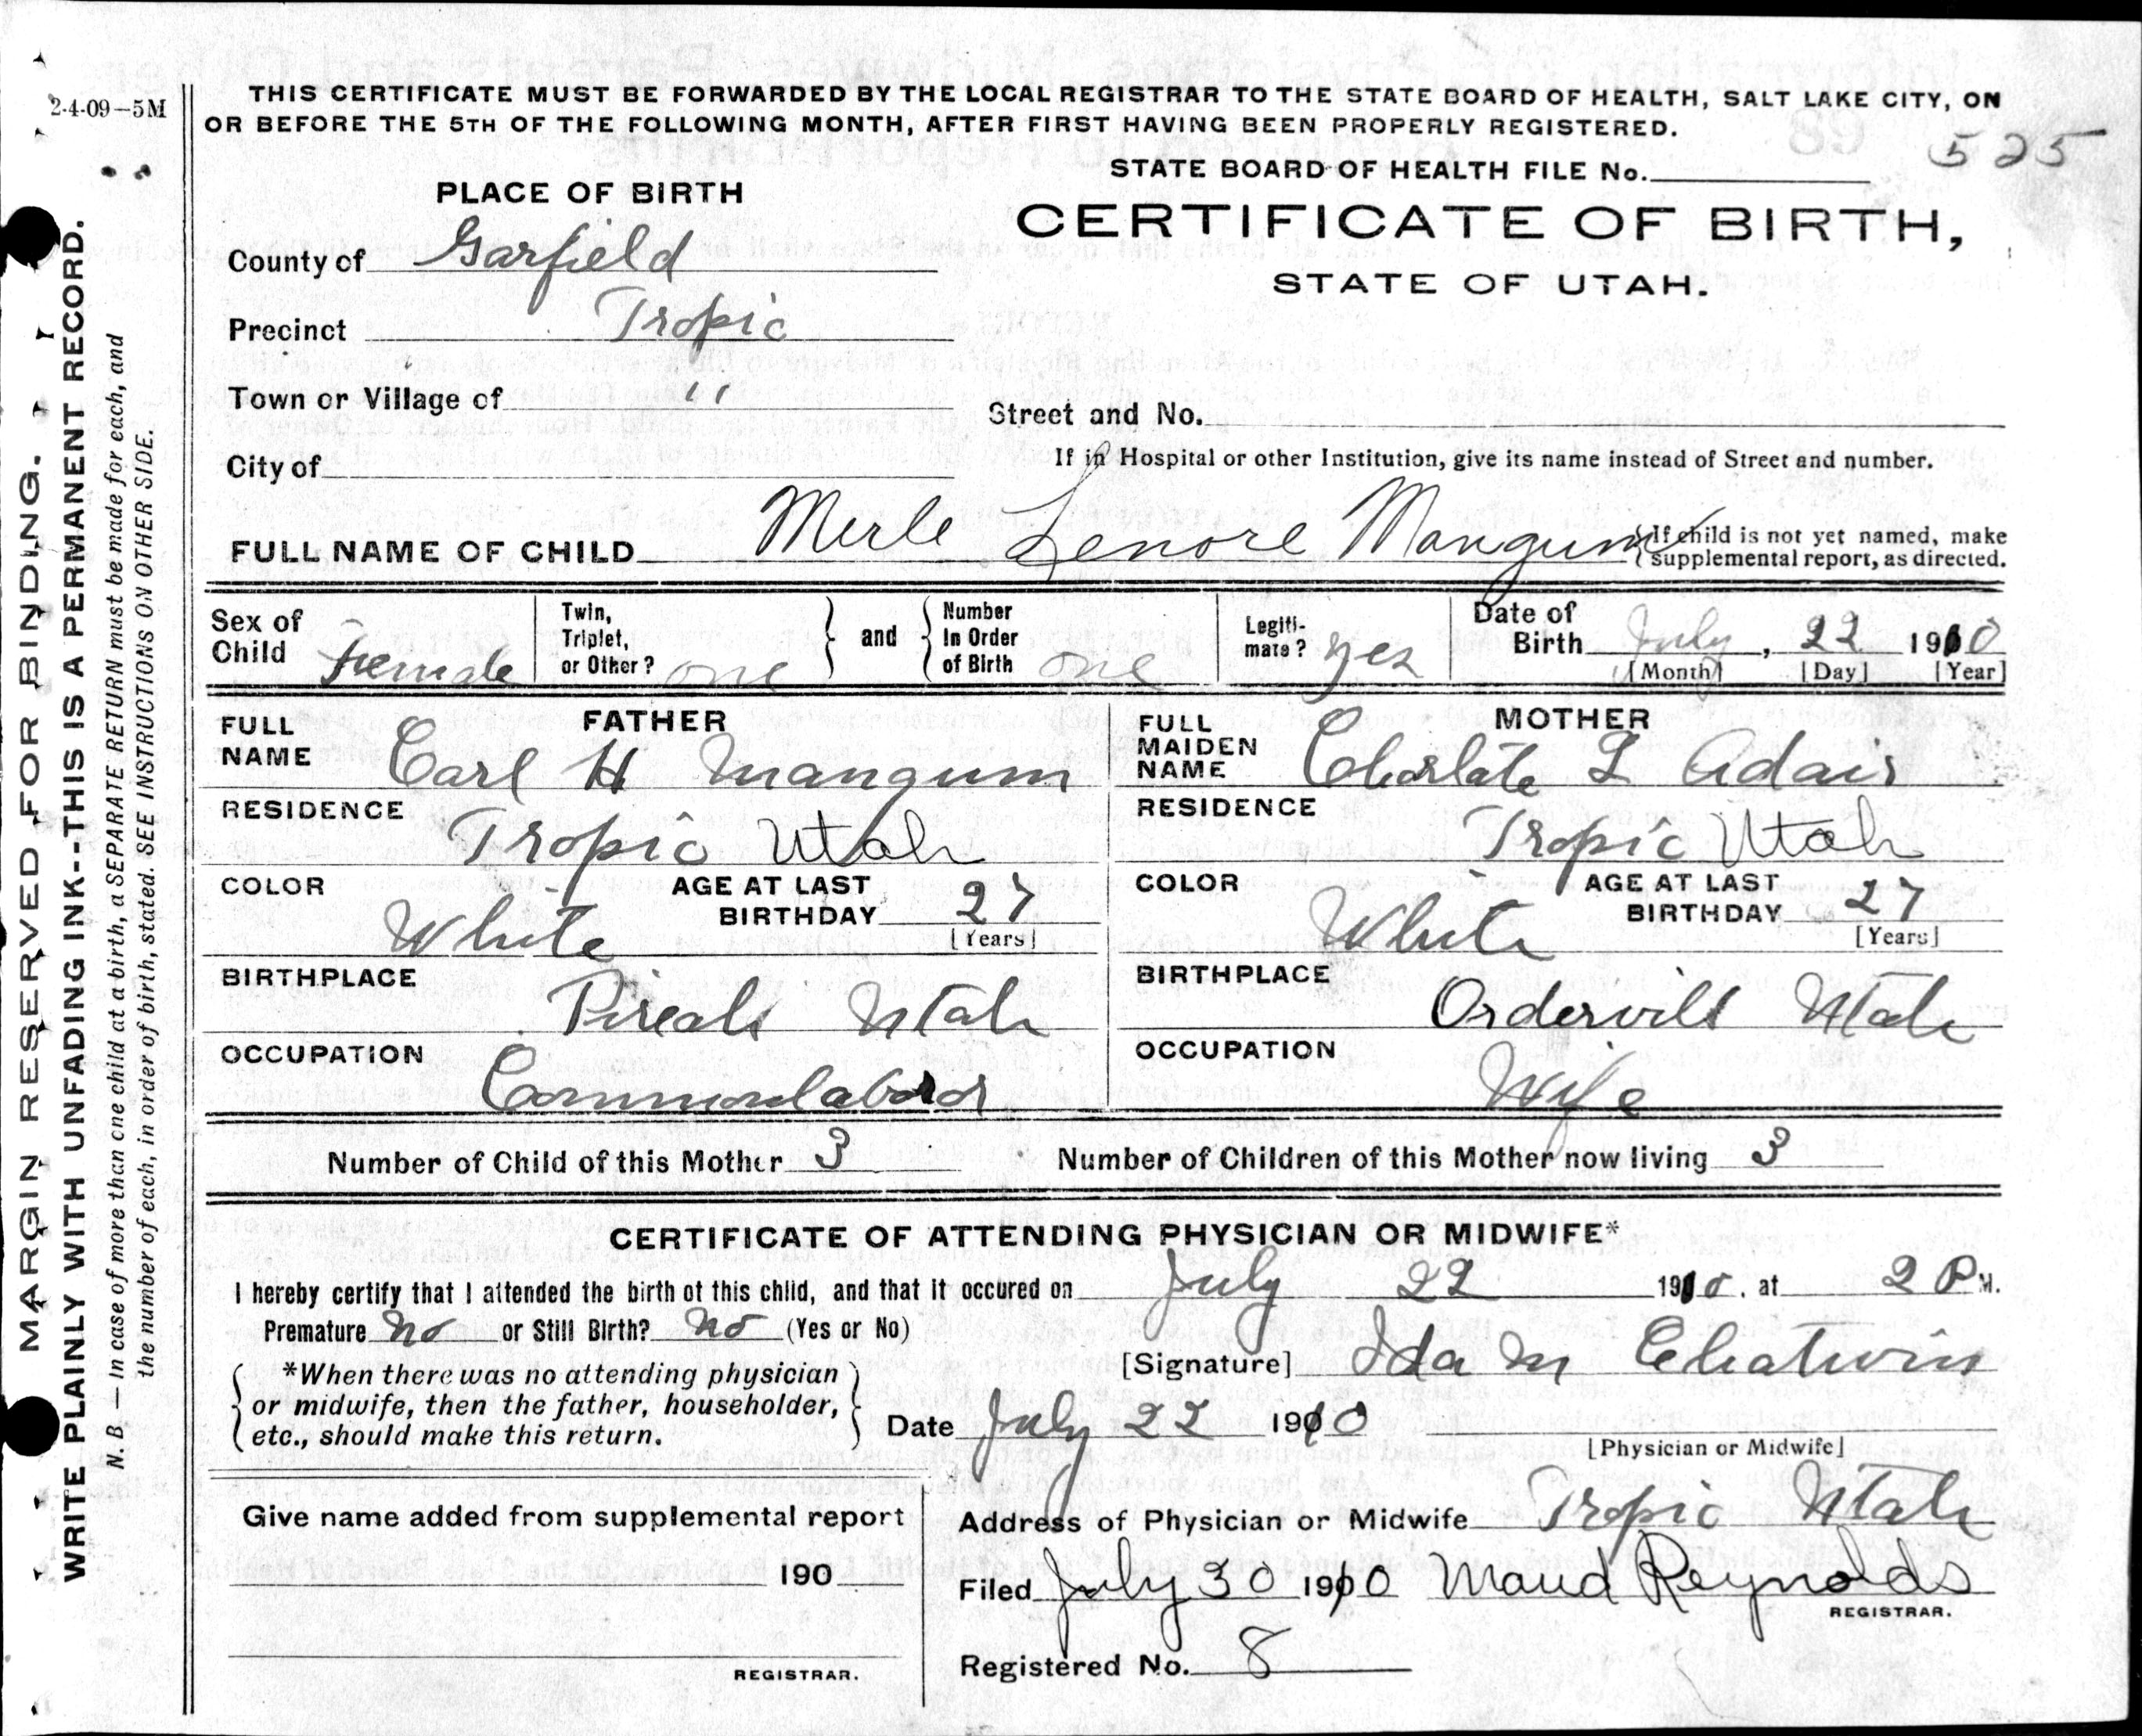 2-4-09—5M
THIS CERTIFICATE MUST BE FORWARDED BY THE LOCAL REGISTRAR TO THE STATE BOARD OF HEALTH, SALT LAKE CITY, ON
OR BEFORE THE 5TH OF THE FOLLOWING MONTH, AFTER FIRST HAVING BEEN PROPERLY REGISTERED.
525
STATE BOARD OF HEALTH FILE No.
PLACE OF BIRTH
CERTIFICATE OF BIRTH,
STATE OF UTAH.
County of Garfield
Precinct Tropic
Town or Village of "
Street and No.
City of
If in Hospital or other Institution, give its name instead of Street and number.
FULL NAME OF CHILD Merle Lenore Mangum
{If child is not yet named, make
supplemental report, as directed.
Sex of Child Female
Twin, Triplet, or Other? one } and { Number In Order of Birth one
Legiti-mate? yes
Date of Birth July, 22 1910
[Month] [Day] [Year]
FATHER
FULL NAME Carl H Mangum
RESIDENCE Tropic Utah
COLOR White
AGE AT LAST BIRTHDAY 27
[Years]
BIRTHPLACE Utah
OCCUPATION Common labord
MOTHER
FULL MAIDEN NAME Charlate L Adair
RESIDENCE Tropic Utah
COLOR White
AGE AT LAST BIRTHDAY 27
[Years]
BIRTHPLACE Ordervill Utah
OCCUPATION Wife
Number of Child of this Mother 3
Number of Children of this Mother now living 3
CERTIFICATE OF ATTENDING PHYSICIAN OR MIDWIFE*
I hereby certify that I attended the birth of this child, and that it occured on July 22 1910, at 2 P M.
Premature No or Still Birth? No (Yes or No)
{ *When there was no attending physician
or midwife, then the father, householder,
etc., should make this return. }
[Signature] Ida M Chatwin
Date July 22 1910
[Physician or Midwife]
Give name added from supplemental report
190
REGISTRAR.
Address of Physician or Midwife Tropic Utah
Filed July 30 1910 Maud Reynolds
REGISTRAR.
Registered No. 8
MARGIN RESERVED FOR BINDING.
WRITE PLAINLY WITH UNFADING INK--THIS IS A PERMANENT RECORD.
N. B — In case of more than one child at a birth, a SEPARATE RETURN must be made for each, and
the number of each, in order of birth, stated. SEE INSTRUCTIONS ON OTHER SIDE.